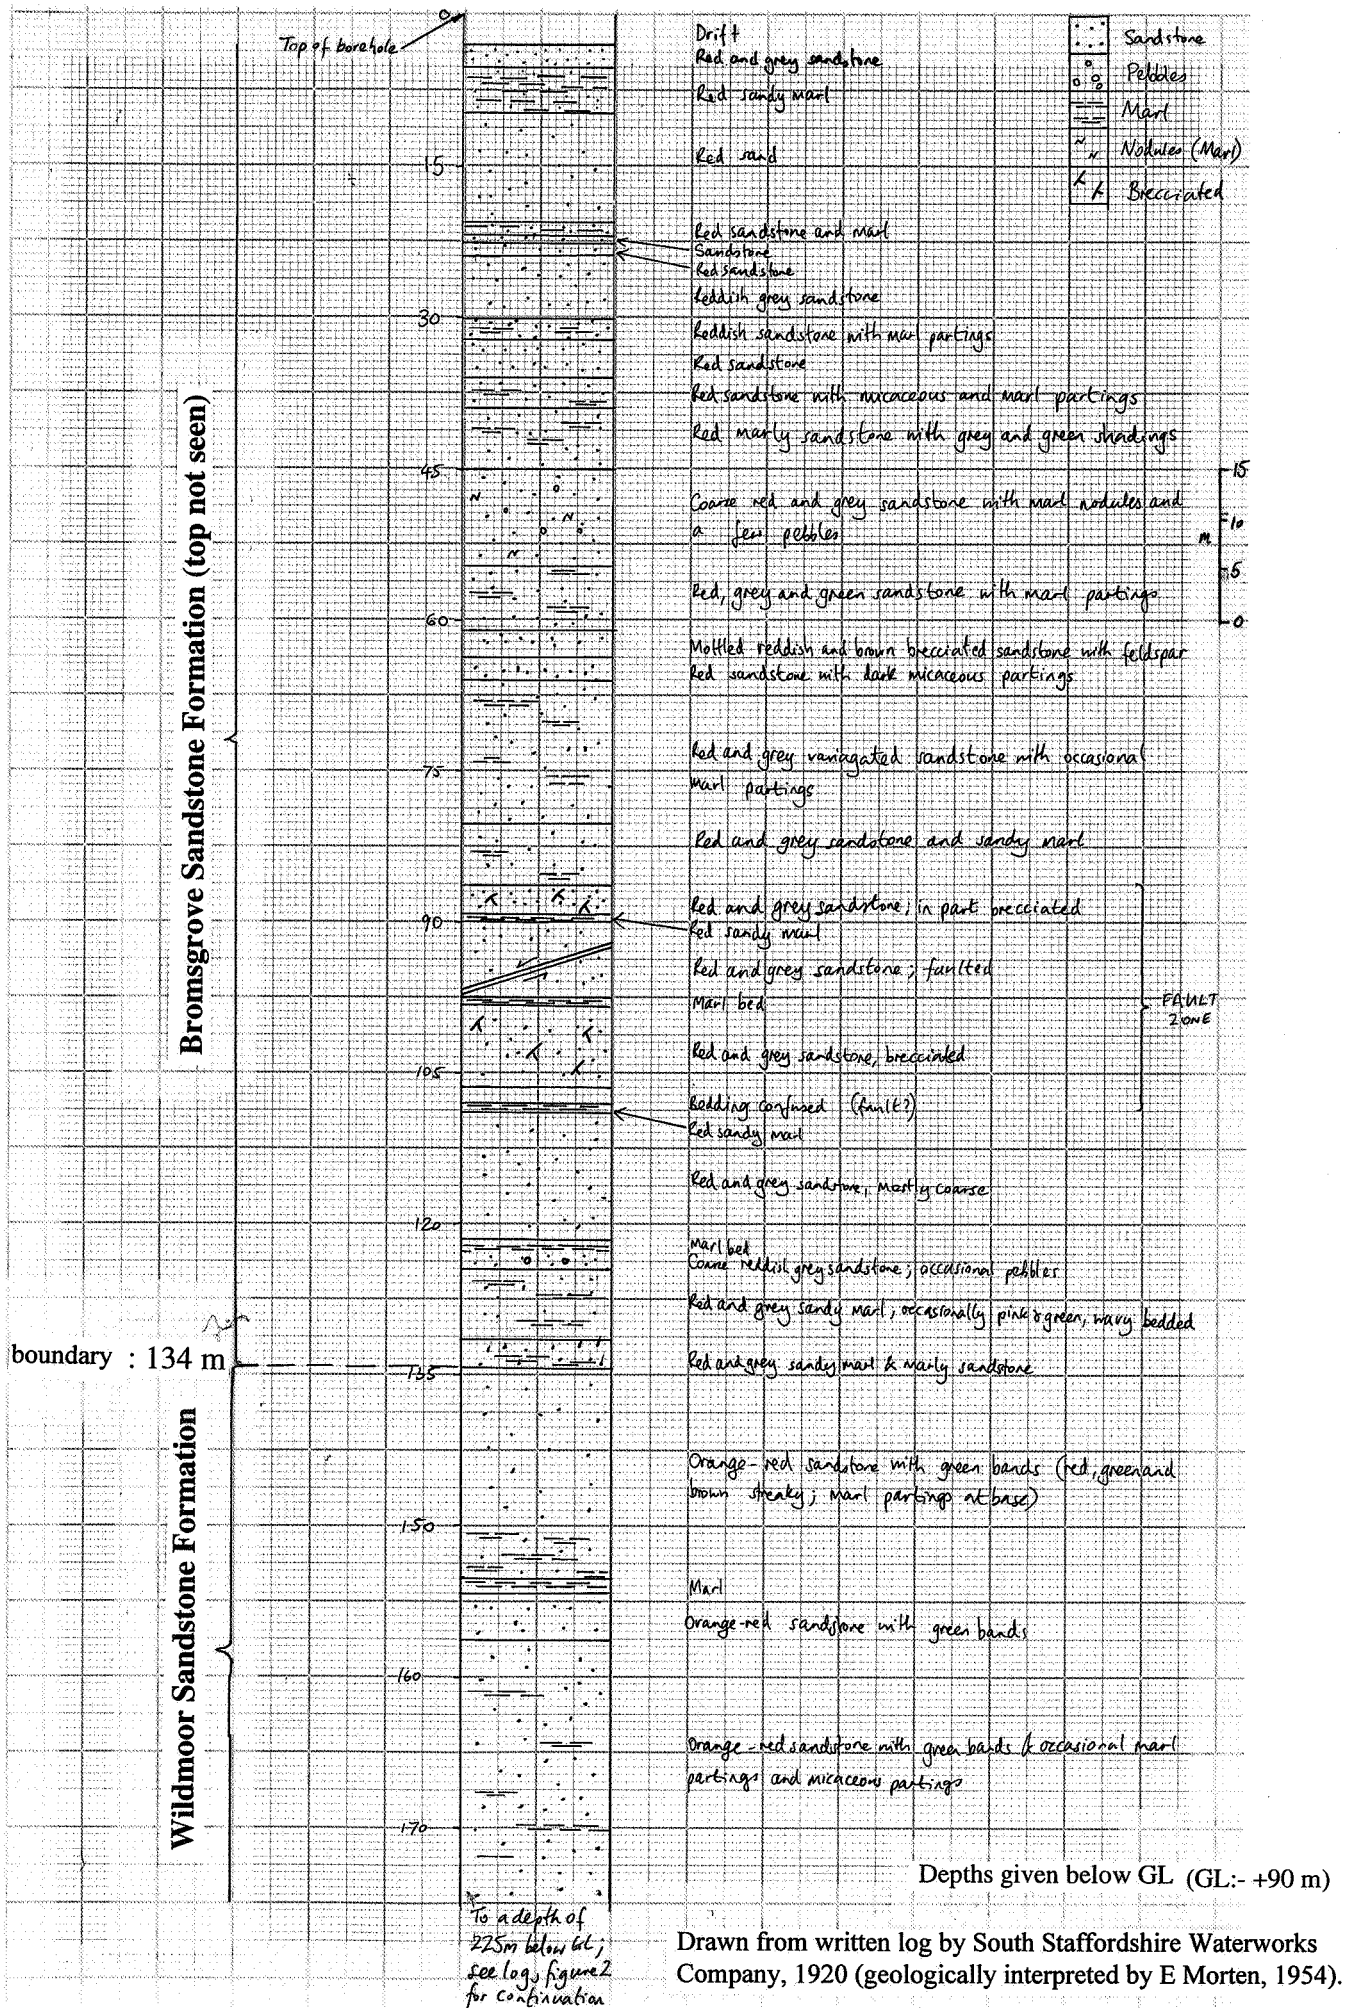 0
Top of borehole
Drift
Red and grey sandstone
Red sandy marl
Red sand
15
Red sandstone and marl
Sandstone
Red sandstone
Reddish grey sandstone
30
Reddish sandstone with marl partings
Red sandstone
Red sandstone with micaceous and marl partings
Red marly sandstone with grey and green shadings
45
Coarse red and grey sandstone with marl nodules and
a few pebbles
Red, grey and green sandstone with marl partings
60
Mottled reddish and brown brecciated sandstone with feldspar
Red sandstone with dark micaceous partings
Red and grey variagated sandstone with occasional
75
marl partings
Red and grey sandstone and sandy marl
Red and grey sandstone, in part brecciated
90
Red sandy marl
Red and grey sandstone; faulted
Marl bed
Red and grey sandstone, brecciated
105
Bedding confused (fault?)
Red sandy marl
Red and grey sandstone, mostly coarse
120
Marl bed
Coarse reddish grey sandstone; occasional pebbles
Red and grey sandy marl; occasionally pink & green, wavy bedded
Red and grey sandy marl & marly sandstone
135
Orange-red sandstone with green bands (red, green and
brown streaky; marl partings at base)
150
Marl
Orange-red sandstone with green bands
160
Orange-red sandstone with green bands & occasional marl
partings and micaceous partings
170
Sandstone
Pebbles
Marl
Nodules (Marl)
Brecciated
15
10
m
5
0
FAULT
ZONE
Bromsgrove Sandstone Formation (top not seen)
boundary : 134 m
Wildmoor Sandstone Formation
Depths given below GL (GL:- +90 m)
To a depth of
225m below GL;
see log, figure 2
for continuation
Drawn from written log by South Staffordshire Waterworks
Company, 1920 (geologically interpreted by E Morten, 1954).